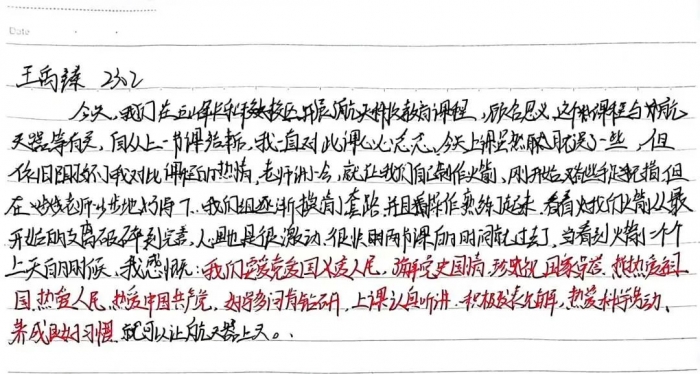 Date
王禹臻 2302
今天,我们在五峰 校区开展航天特长教育课程,顾名思义,这个课程与航
天器等有关,自从上一节课结束后,我一直对此课心心念念,今天上课虽然 晚了一些,但
依旧阻碍不了我对此课程的热情,老师讲一会,就让我们自己制作火箭,刚开始 手忙脚乱,但
在 老师一步步地 下,我们组逐渐摸清了套路,并且操作熟练了起来,看着我们火箭从最
开始的支离破碎到完善,人心里也是很激动,很快两节课的时间就过去了,当看到火箭一个个
上天的时候,我感慨:我们要爱党爱国爱人民,了解党史国情,珍视国家荣誉,热爱祖
国,热爱人民,热爱中国共产党,好学多问肯钻研,上课认真听讲,积极发表见解,热爱科学劳动,
养成良好习惯,就可以让航天器上天。